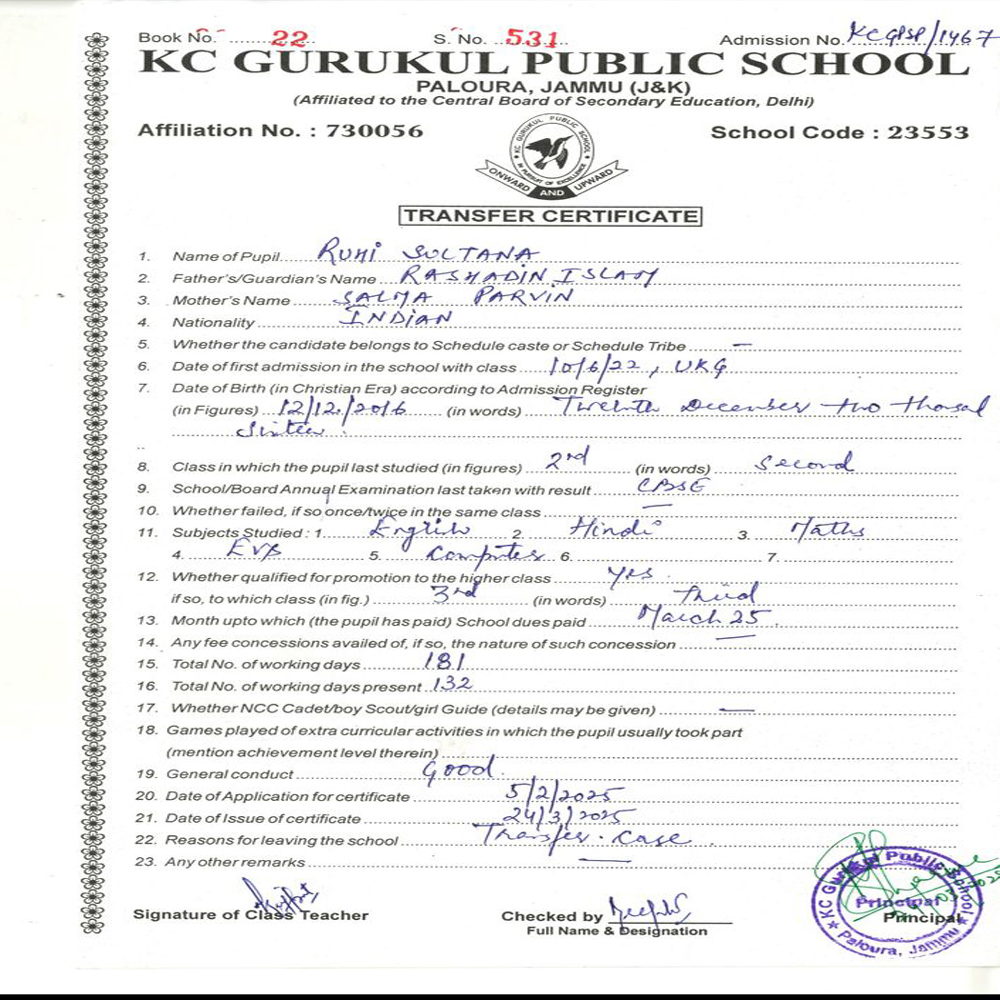 Book No. 22 S. No. 531 Admission No. KCGPSP/1467
KC GURUKUL PUBLIC SCHOOL
PALOURA, JAMMU (J&K)
(Affiliated to the Central Board of Secondary Education, Delhi)
Affiliation No. : 730056 School Code : 23553
KC GURUKUL PUBLIC SCHOOL
IN PURSUIT OF EXCELLENCE
ONWARD AND UPWARD
TRANSFER CERTIFICATE
1. Name of Pupil RUHI SULTANA
2. Father's/Guardian's Name RASHADIN ISLAM
3. Mother's Name SALMA PARVIN
4. Nationality INDIAN
5. Whether the candidate belongs to Schedule caste or Schedule Tribe —
6. Date of first admission in the school with class 10/6/22, UKG
7. Date of Birth (in Christian Era) according to Admission Register
(in Figures) 12/12/2016 (in words) Twelvth December two thosal
Sixteen
8. Class in which the pupil last studied (in figures) 2nd (in words) Second
9. School/Board Annual Examination last taken with result CBSE
10. Whether failed, if so once/twice in the same class —
11. Subjects Studied : 1. English 2. Hindi 3. Maths
4. EVS 5. Computer 6. 7.
12. Whether qualified for promotion to the higher class yes
if so, to which class (in fig.) 3rd (in words) Third
13. Month upto which (the pupil has paid) School dues paid March 25
14. Any fee concessions availed of, if so, the nature of such concession —
15. Total No. of working days 181
16. Total No. of working days present 132
17. Whether NCC Cadet/boy Scout/girl Guide (details may be given) —
18. Games played of extra curricular activities in which the pupil usually took part
(mention achievement level therein)
19. General conduct Good
20. Date of Application for certificate 5/2/2025
21. Date of Issue of certificate 24/3/2025
22. Reasons for leaving the school Transfer Case
23. Any other remarks —
Signature of Class Teacher
Checked by
Full Name & Designation
KC Gurukul Public School
Principal
Principal
Paloura, Jammu